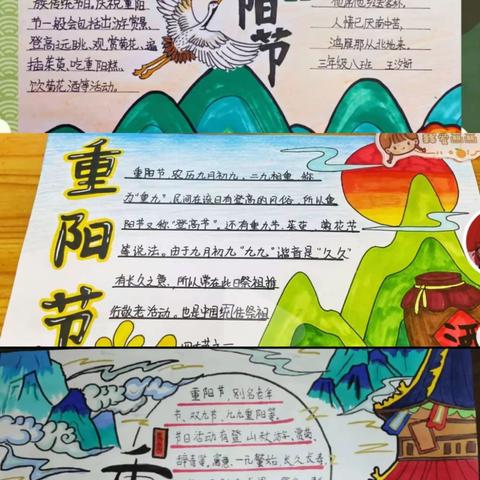 族传统节日,庆祝重阳
节一般会包括出游赏景、
登高远眺、观赏菊花、遍
插茱萸、吃重阳糕、
饮菊花酒等活动。
阳节
人情已厌南中苦,
鸿雁那从北地来。
三年级八班 王汐妍
重阳节
重阳节,农历九月初九,二九相重,称
为"重九"。民间在该日有登高的风俗,所以重
阳节又称"登高节"。还有重九节、茱萸、菊花节
等说法。由于九月初九"九九"谐音是"久久"
有长久之意,所以常在此日祭祖推
行敬老活动。也是中国传统祭祖
四大节之一
酒
重阳节,别名老年
节、双九节、九九重阳等。
节日活动有登山秋游、赏菊、
辞青等,寓意一元肇始,长久长寿、
重